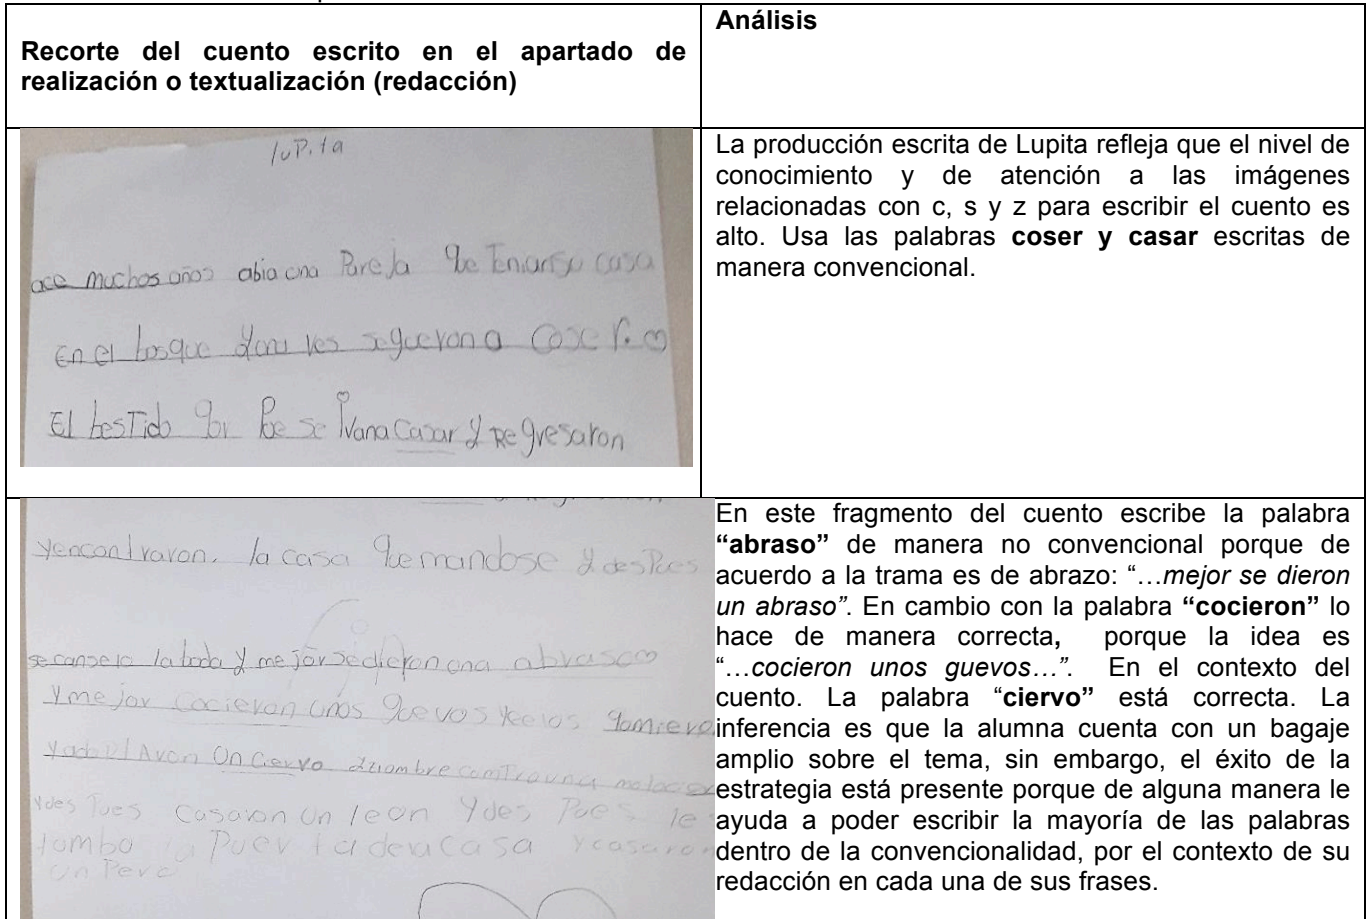 Recorte del cuento escrito en el apartado de
realización o textualización (redacción)
Análisis
lupita
ace muchos años abia una Pareja que tenian su casa
En el bosque y una ves se gueron a Coser
El bestido por que se ivan a Casar y Regresaron
La producción escrita de Lupita refleja que el nivel de
conocimiento y de atención a las imágenes
relacionadas con c, s y z para escribir el cuento es
alto. Usa las palabras coser y casar escritas de
manera convencional.
y encontraron. la casa quemandose y des Pues
se canselo la boda y mejor se dieron una abraso
y mejor Cocieron unos guevos
y adoptAron Un Ciervo
y des Pues Casaron Un leon y des Pues le
tumbo la Puerta de la Casa y casaron
Un Pero
En este fragmento del cuento escribe la palabra
“abraso” de manera no convencional porque de
acuerdo a la trama es de abrazo: “…mejor se dieron
un abraso”. En cambio con la palabra “cocieron” lo
hace de manera correcta, porque la idea es
“…cocieron unos guevos…”. En el contexto del
cuento. La palabra “ciervo” está correcta. La
inferencia es que la alumna cuenta con un bagaje
amplio sobre el tema, sin embargo, el éxito de la
estrategia está presente porque de alguna manera le
ayuda a poder escribir la mayoría de las palabras
dentro de la convencionalidad, por el contexto de su
redacción en cada una de sus frases.